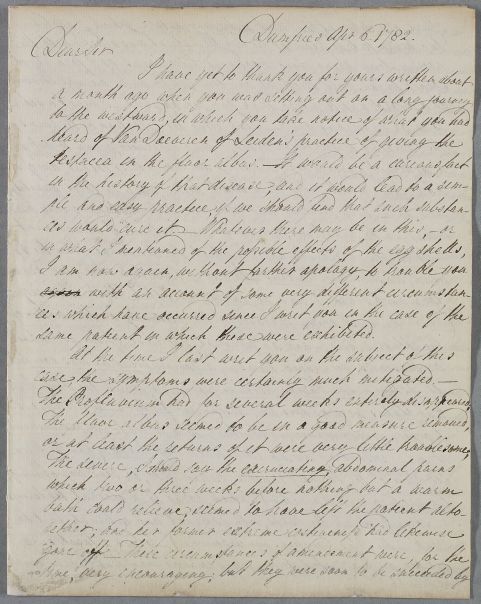 Dumfries Apr 6 1782.
Dear Sir
I have yet to thank you for yours written about
a month ago when you was setting out on a long journey
to the westward, in which you take notice of what you had
heard of Van Doeveren of Leiden's practice of giving the
testacea in the fluor albus. — It would be a curious fact
in the history of that disease, and it would lead to a sim-
ple and easy practice, if we should find that such substan-
ces would cure it. Whatever there may be in this, or
in what I mentioned of the possible effects of the egg shells,
I am now again, without farther apology to trouble you
again with an account of some very different circumstan-
ces which have occurred since I writ you in the case of the
same patient in which these were exhibited.
At the time I last writ you on the subject of this
case, the symptoms were certainly much mitigated. —
The Profluvium had for several weeks entirely disappeared,
The fluor albus seemed to be in a good measure removed,
or at least the returns of it were very little troublesome,
The severe, I should say the excruciating, abdominal pains
which two or three weeks before nothing but a warm
bath could relieve, seemed to have left the patient alto-
gether; and her former extreme costiveness had likewise
gone off. These circumstances of amendment were, for the
time, very encouraging; but they were soon to be succeeded by